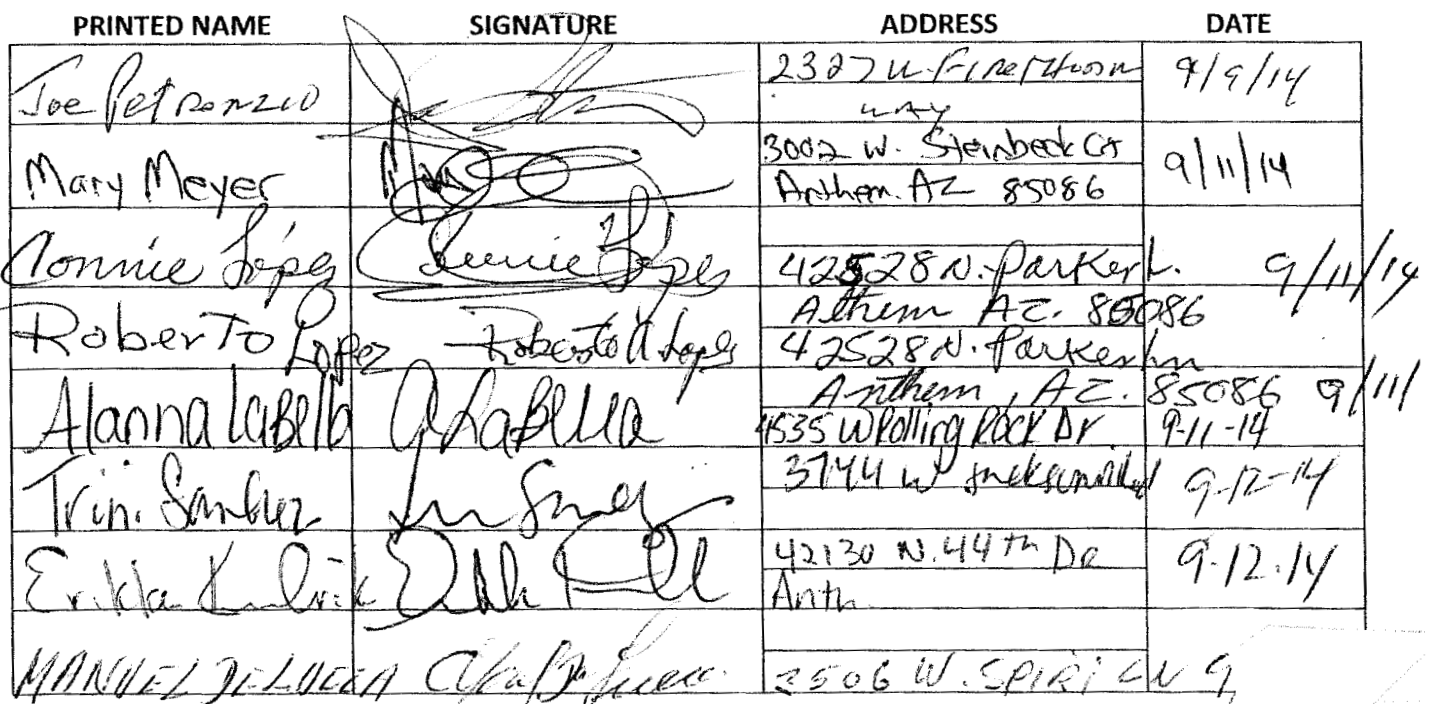 PRINTED NAME SIGNATURE ADDRESS DATE
Joe Petronzio 2327 W. Firethorn 9/9/14
way
Mary Meyer 3002 W. Steinbeck Ct 9/11/14
Anthem. AZ 85086
Connie Lópes Connie Lópes 42528 N. Parker L. 9/11/14
Althem AZ. 85086
Roberto Lopez Roberto Lopes 42528 N. Parker Ln
Anthem, AZ. 85086 9/11/
Alanna LaBella A LaBella 4535 W Rolling Rock Dr 9-11-14
Trini 3744 W 9-12-14
Erikka 42130 N. 44th Dr 9-12-14
Anth.
MANUEL DELUCCA 2506 W. SPIRI LN 9